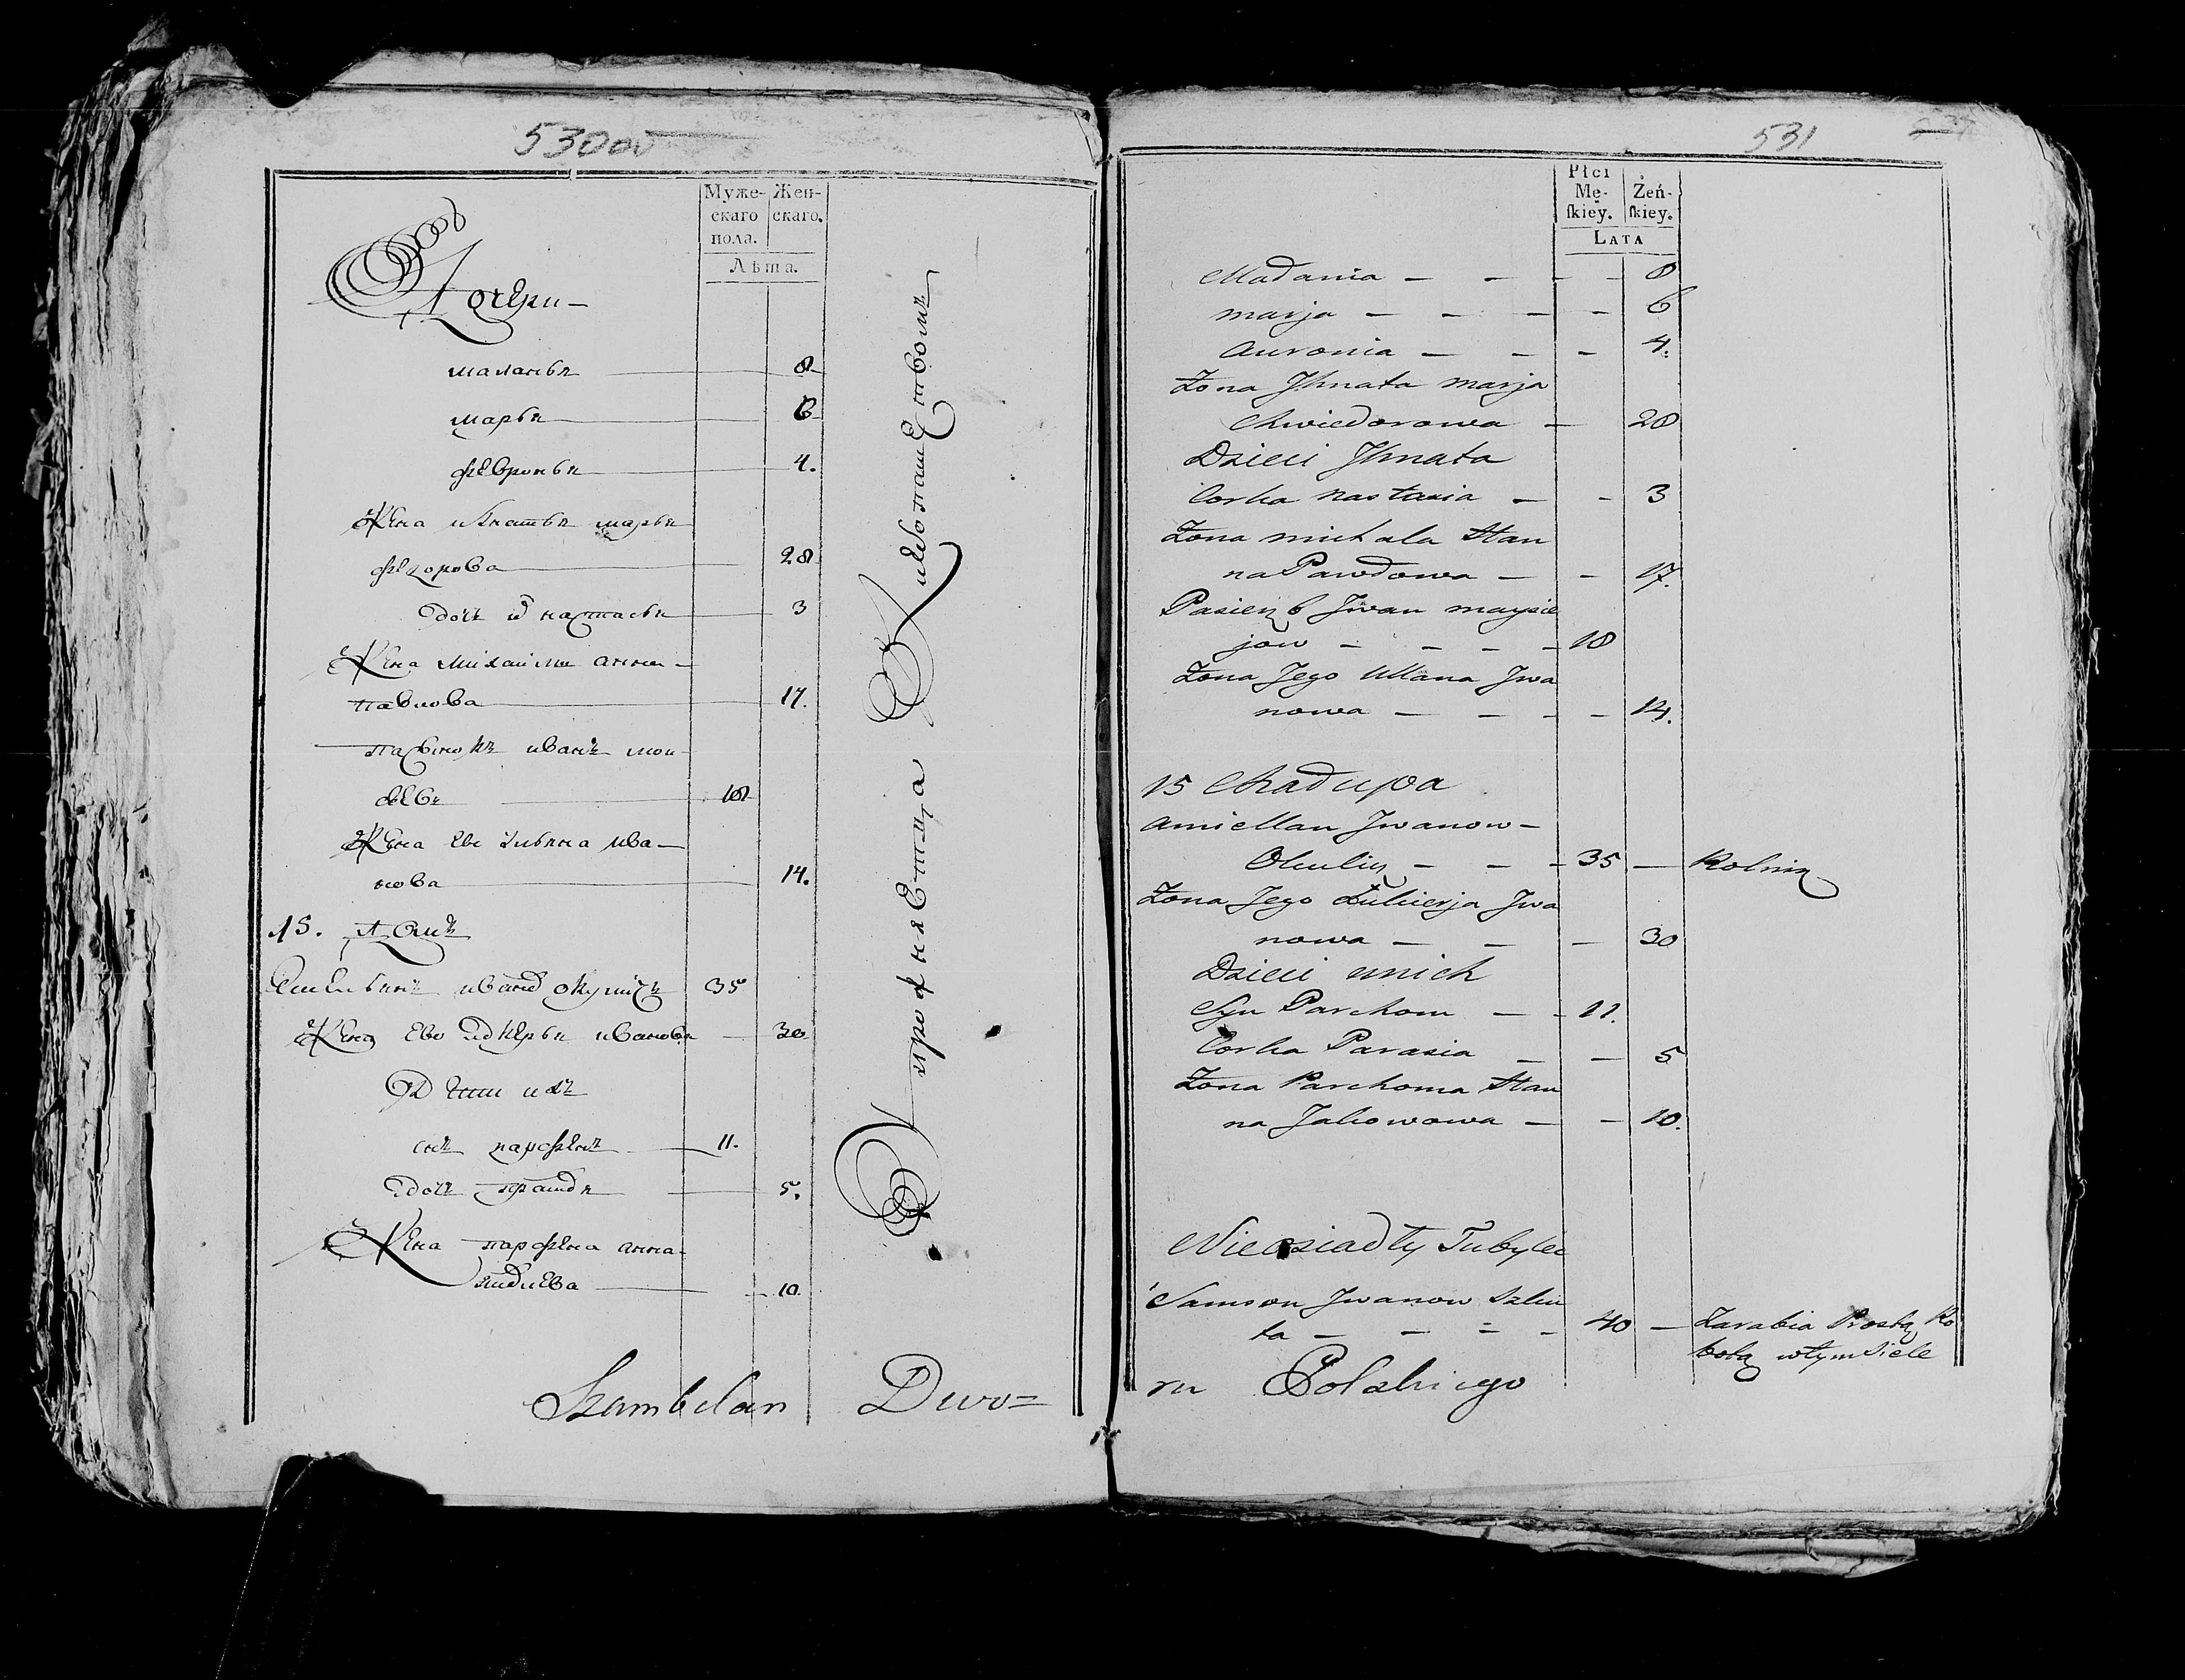 530об
Муже-
скаго
пола.
Жен-
скаго.
Лѣта.
Дочери —
маланья 8
марья 6
февронья 4.
Жена игнатья марья
федорова 28
дочь настасья 3
Жена михаилы анна
павлова 17.
пасынокъ иванъ мои
сеевъ 18
Жена ево ульяна ива —
нова 14.
15. домъ
иванов окуличъ 35
Жена ево лукерья иванова — 30
Дети ихъ
сынъ парфенъ 11.
дочь 5.
Жена парфена анна
10.
профизжает
Szambelan Dwo=
531
Płci
Mę-
ſkiey.
Żeń-
ſkiey.
LATA
Madania — — — — 8
marja — — — — 6
Auronia — — — 4.
Zona Jhnata marja
Chwiedorowa — 28
Dzieci Jhnata
Corka nastazia — — 3
Zona michala Han
na Pawdowa — — 17.
Pasierzb Jwan maysie
jow — — — — 18
Zona Jego Ullana Jwa
nowa — — — — 14.
15 Chadupa
Amiellan Jwanow —
Okulicz — — — 35 — Rolnik
Zona Jego Łukierja Jwa
nowa — — — 30
Dzieci unich
Syn Parchom — — 11.
Corka Parasia — — 5
Zona Parchoma Han
na Jakowowa — — 10.
Nieosiadły Tubylec
Samson Jwanow
ta — — = — 40 — Zarabia Prostą Ro
botą wtym Siele
ru Polskiego